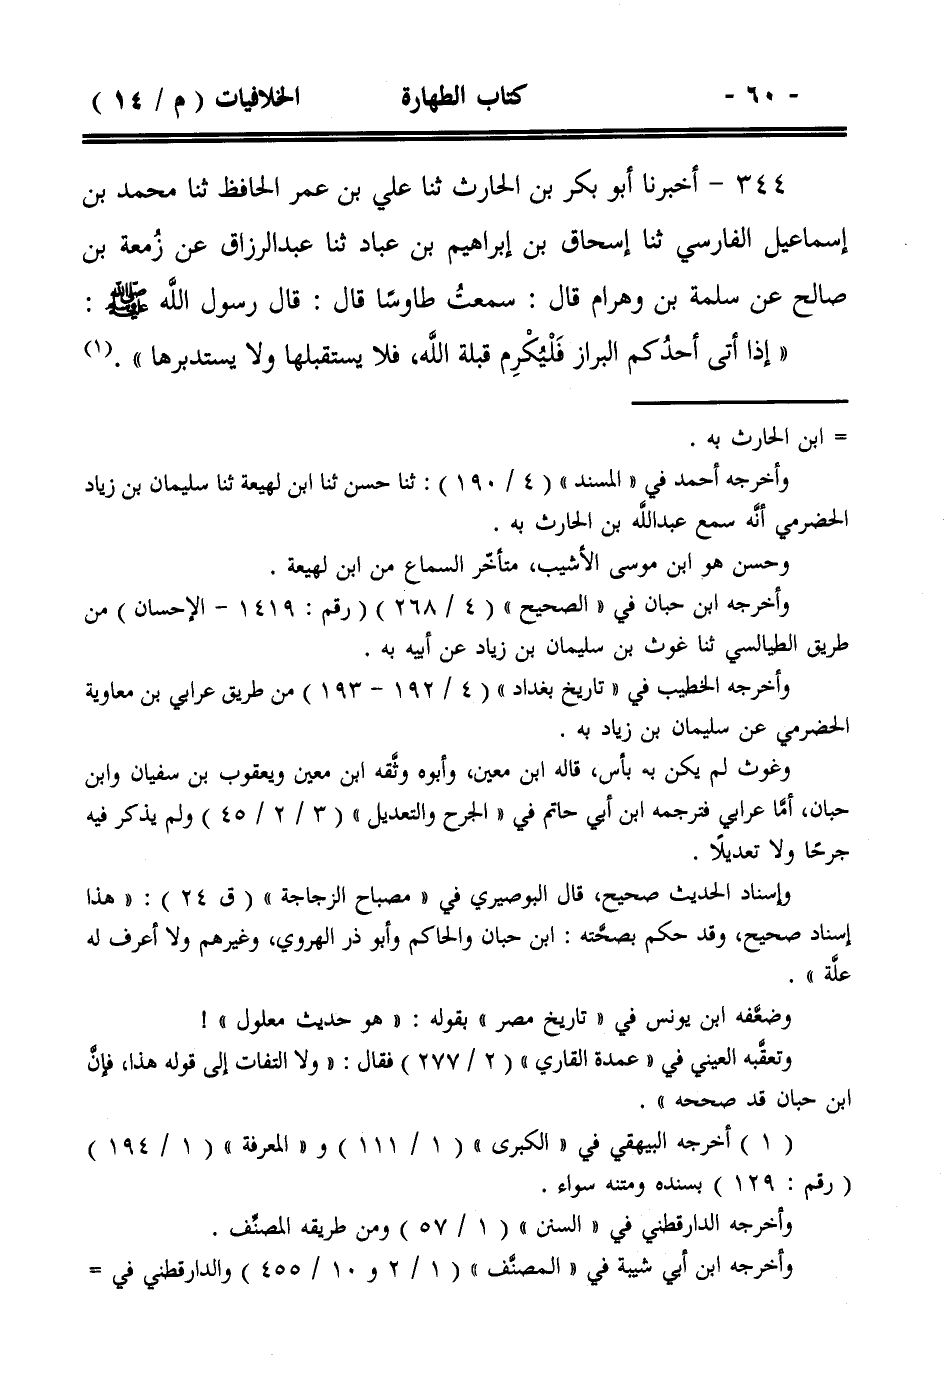 - ٦٠ - كتاب الطهارة الخلافيات ( م / ١٤ )
٣٤٤ - أخبرنا أبو بكر بن الحارث ثنا علي بن عمر الحافظ ثنا محمد بن
إسماعيل الفارسي ثنا إسحاق بن إبراهيم بن عباد ثنا عبدالرزاق عن زُمعة بن
صالح عن سلمة بن وهرام قال : سمعتُ طاوسًا قال : قال رسول اللَّه ﷺ :
« إذا أتى أحدُكم البراز فَلْيُكْرِم قبلة اللَّه، فلا يستقبلها ولا يستدبرها » .(١)
= ابن الحارث به .
وأخرجه أحمد في « المسند » ( ٤ / ١٩٠ ) : ثنا حسن ثنا ابن لهيعة ثنا سليمان بن زياد
الحضرمي أنَّه سمع عبداللَّه بن الحارث به .
وحسن هو ابن موسى الأشيب، متأخّر السماع من ابن لهيعة .
وأخرجه ابن حبان في « الصحيح » ( ٤ / ٢٦٨ ) ( رقم : ١٤١٩ - الإحسان ) من
طريق الطيالسي ثنا غوث بن سليمان بن زياد عن أبيه به .
وأخرجه الخطيب في « تاريخ بغداد » ( ٤ / ١٩٢ - ١٩٣ ) من طريق عرابي بن معاوية
الحضرمي عن سليمان بن زياد به .
وغوث لم يكن به بأس، قاله ابن معين، وأبوه وثَّقه ابن معين ويعقوب بن سفيان وابن
حبان، أمَّا عرابي فترجمه ابن أبي حاتم في « الجرح والتعديل » ( ٣ / ٢ / ٤٥ ) ولم يذكر فيه
جرحًا ولا تعديلًا .
وإسناد الحديث صحيح، قال البوصيري في « مصباح الزجاجة » ( ق ٢٤ ) : « هذا
إسناد صحيح، وقد حكم بصحَّته : ابن حبان والحاكم وأبو ذر الهروي، وغيرهم ولا أعرف له
علَّة » .
وضعَّفه ابن يونس في « تاريخ مصر » بقوله : « هو حديث معلول » !
وتعقَّبه العيني في « عمدة القاري » ( ٢ / ٢٧٧ ) فقال : « ولا التفات إلى قوله هذا، فإنَّ
ابن حبان قد صححه » .
( ١ ) أخرجه البيهقي في « الكبرى » ( ١ / ١١١ ) و « المعرفة » ( ١ / ١٩٤ )
( رقم : ١٢٩ ) بسنده ومتنه سواء .
وأخرجه الدارقطني في « السنن » ( ١ / ٥٧ ) ومن طريقه المصنِّف .
وأخرجه ابن أبي شيبة في « المصنَّف » ( ١ / ٢ و ١٠ / ٤٥٥ ) والدارقطني في =